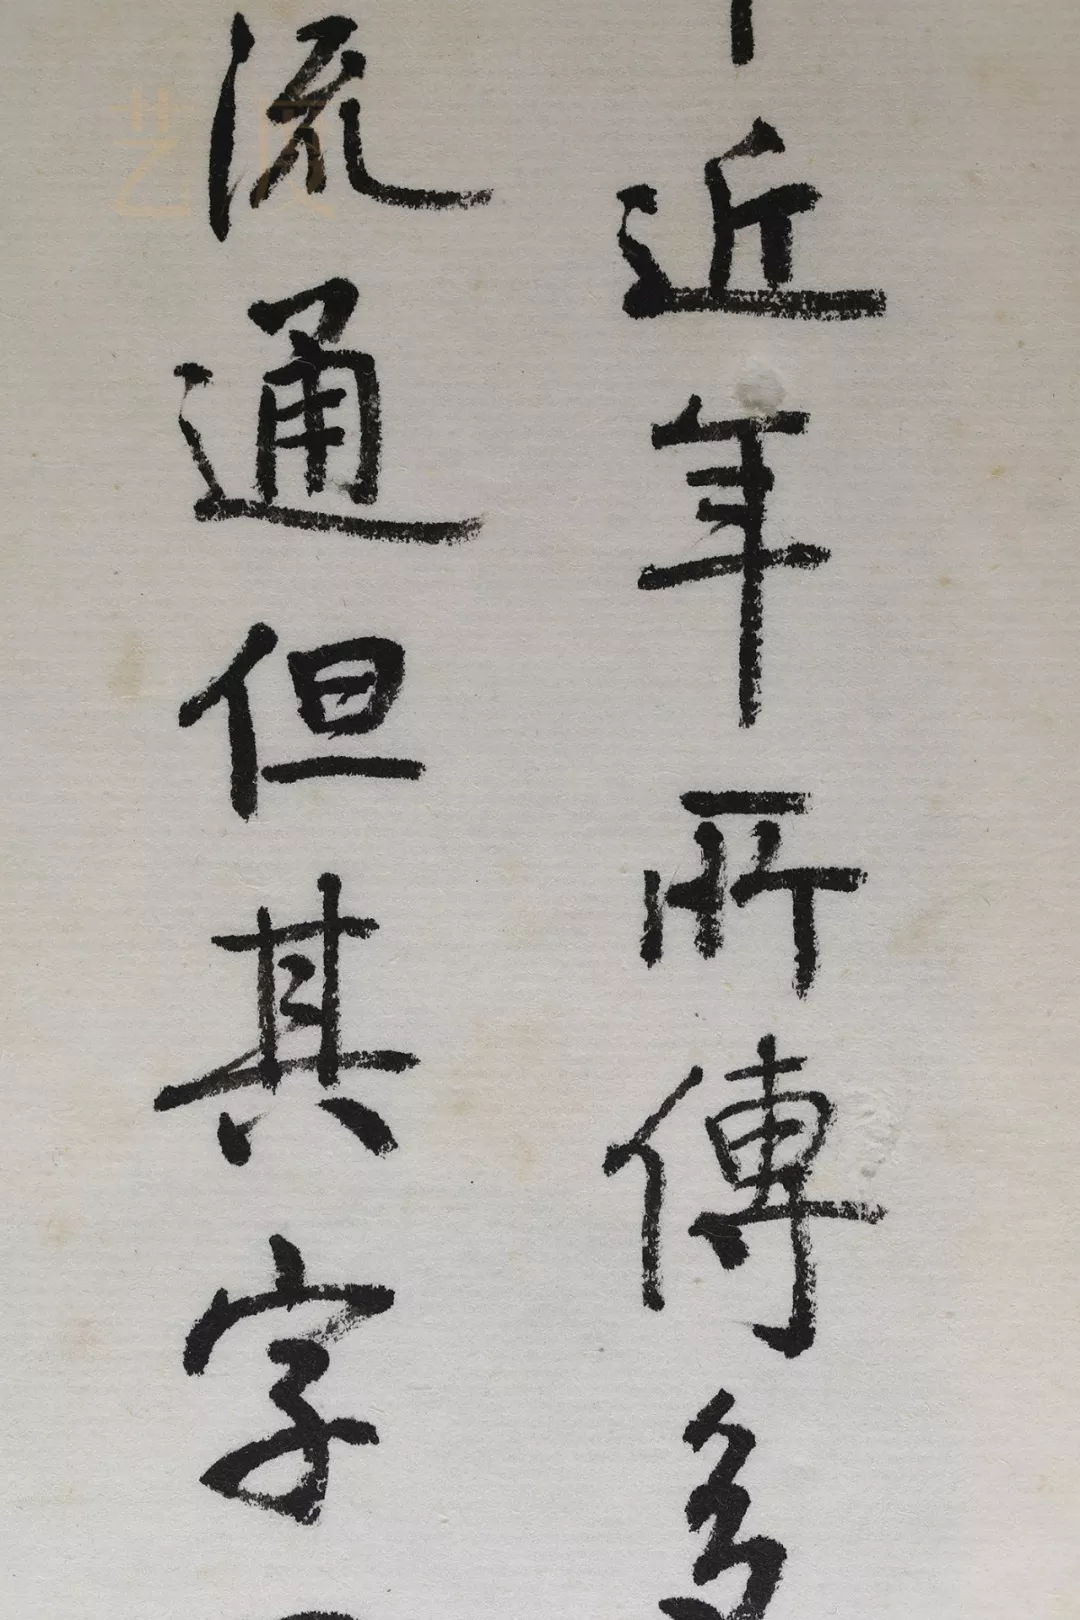 近年所傳多
流通但其字
艺度